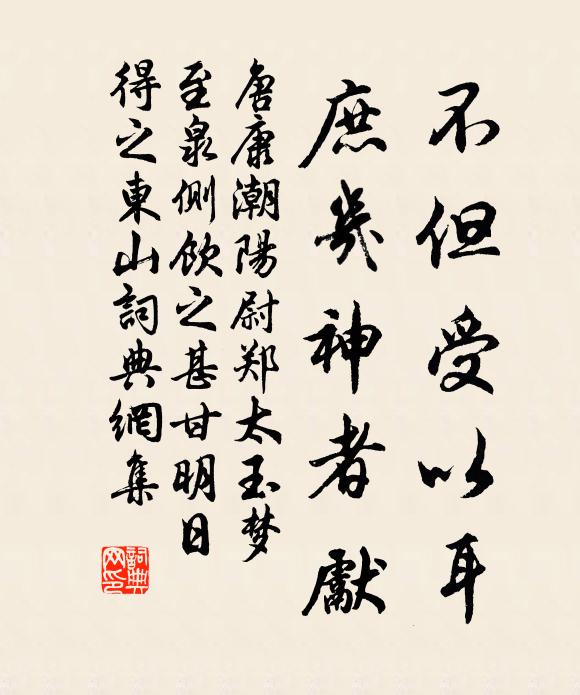 不但受以耳
庶幾神者獻
唐庚潮陽尉郑太玉梦
至泉側飲之甚甘明日
得之東山詞典網集
詞典网印